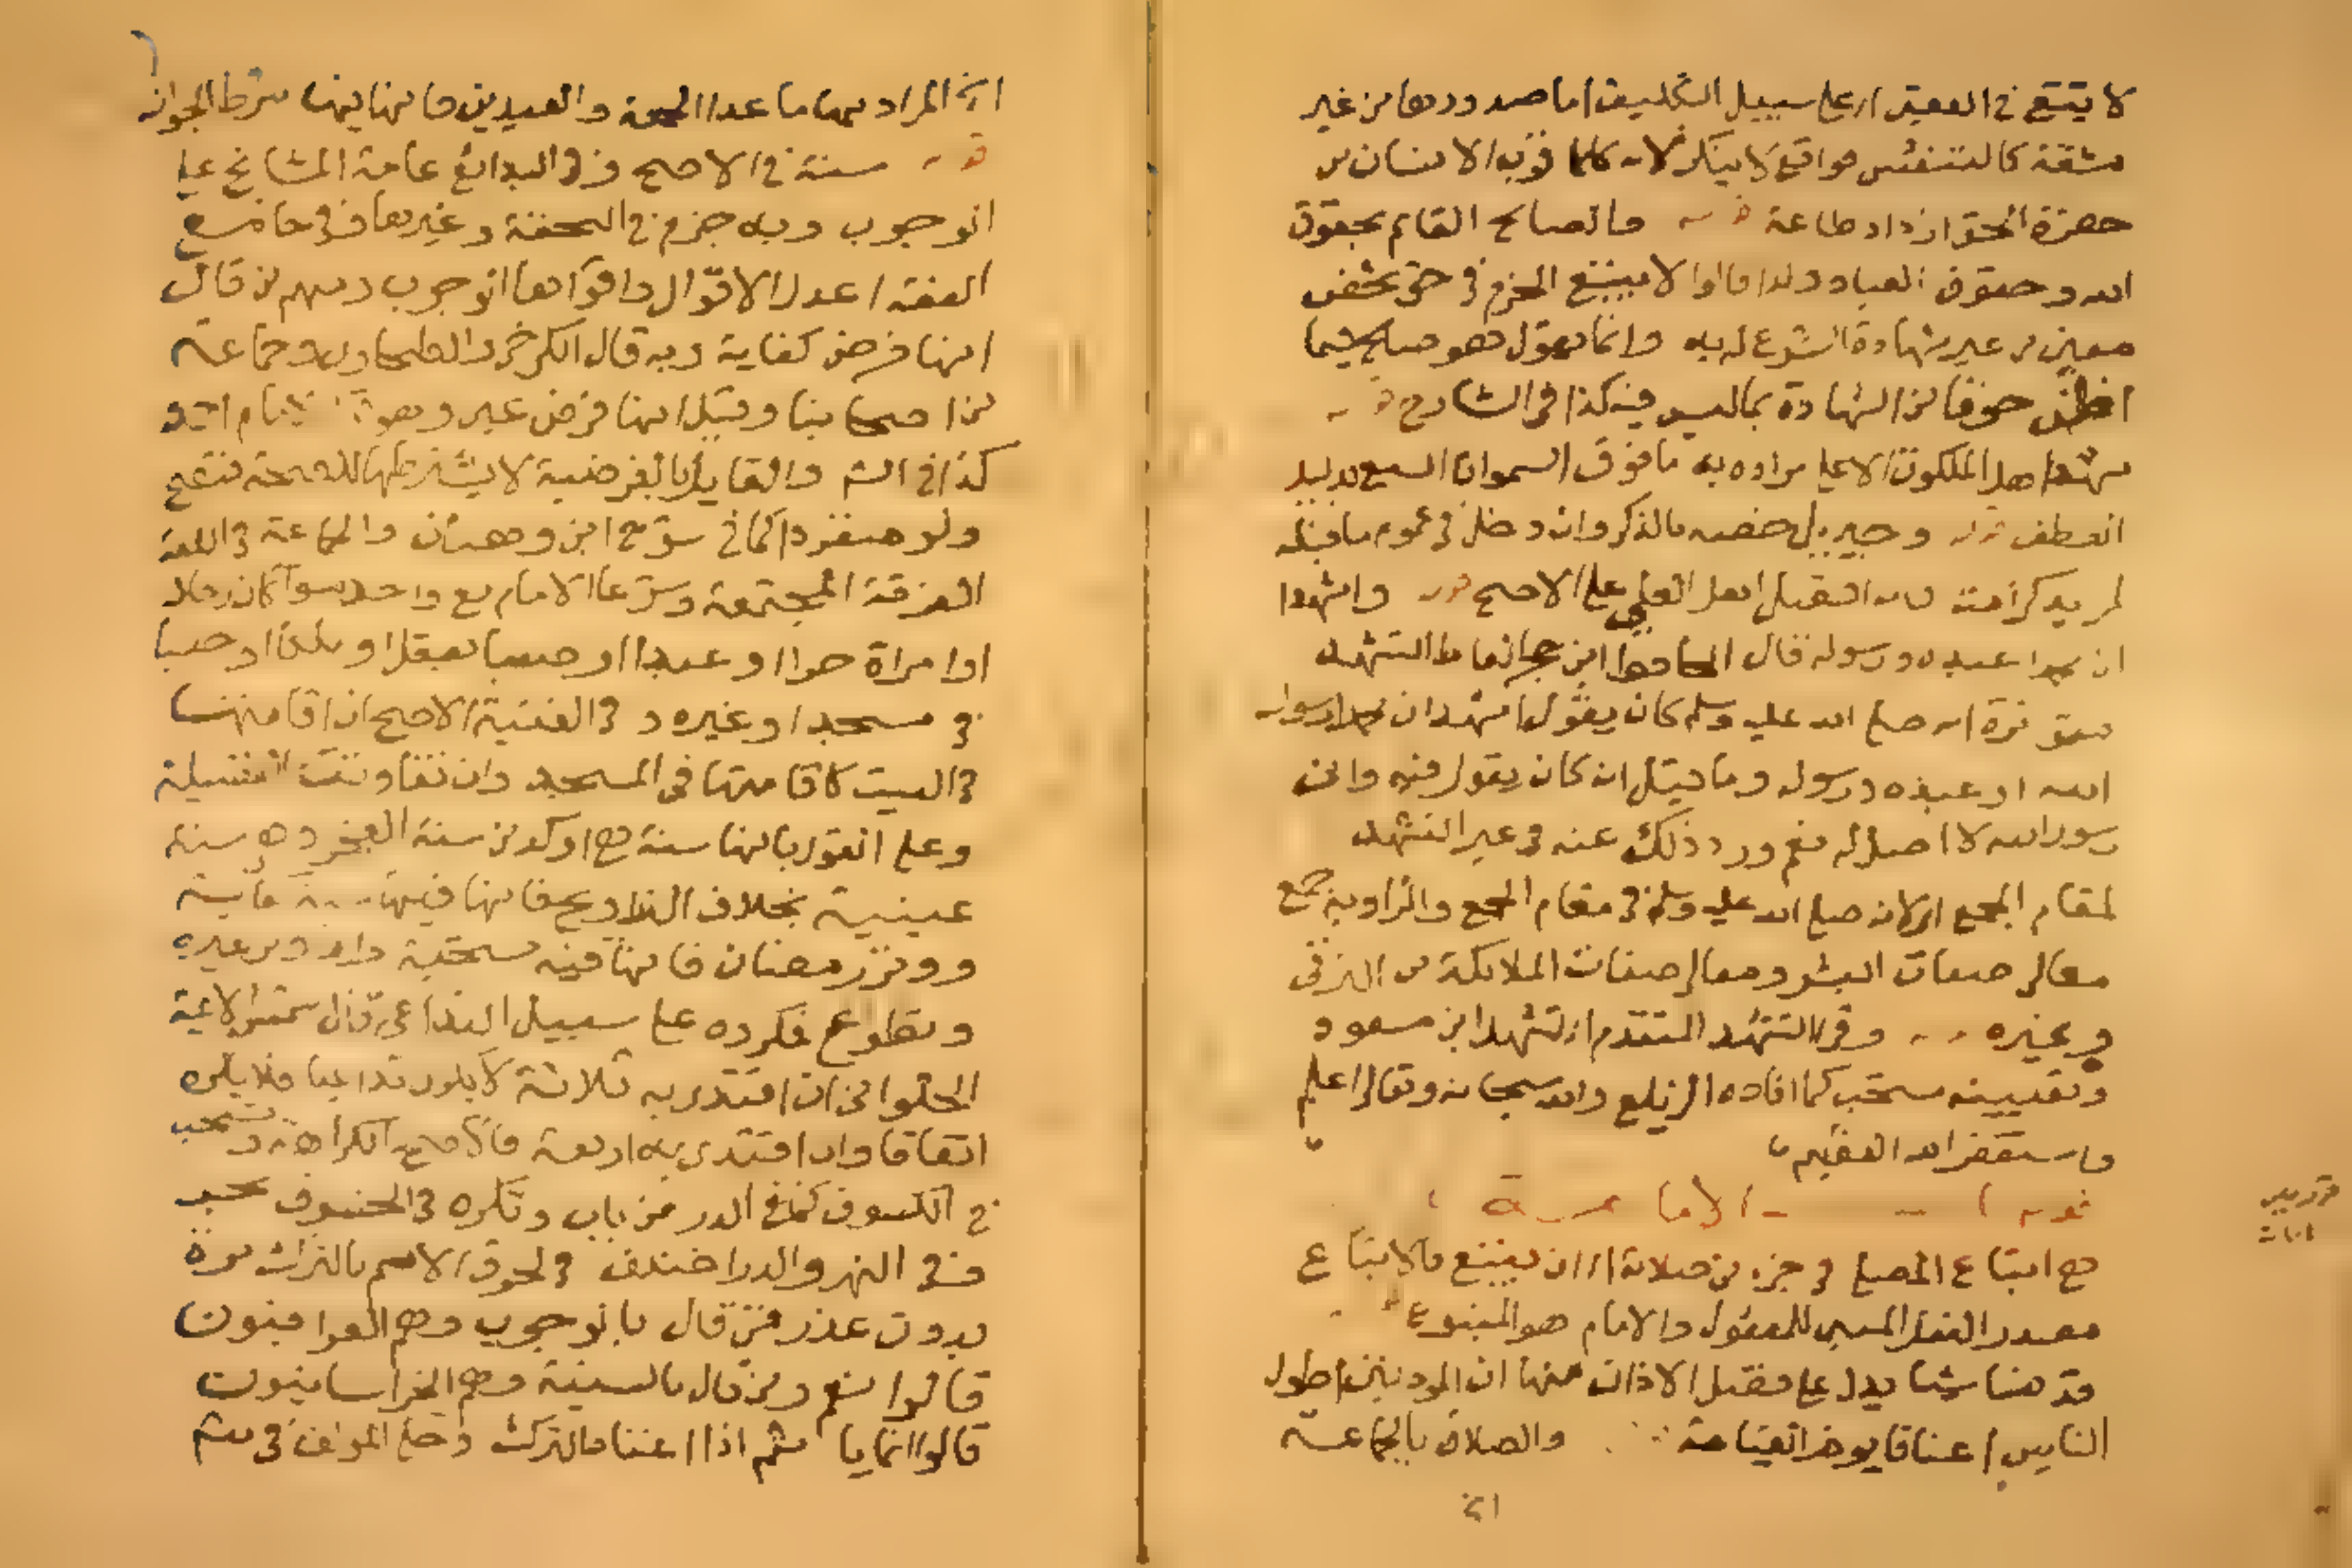 لا يقع في الفقير اي على سبيل التكليف اما صدورها من غير
مشقة كالتنفس فواقع لا ينكر لانه كلما قرب الانسان من
حضرة الحق ازداد طاعة قوله والصالح القائم بحقوق
الله وحقوق العباد ولذا قالوا لا ينبغي الجزم في حق شخص
معين من غير شهادة الشرع له به وانما يقول هو صالح فيما
اظن خوفا من الشهادة بما ليس فيه كذا في الشارح قوله
شهد اهل الملكوت الاعلى مراده به ما فوق السموات السبع بدليل
العطف قوله وجبريل خصه بالذكر وان دخل في عموم ما قبله
لمزيد كرامته على الاصح قوله واشهد
ان محمدا عبده ورسوله قال الحافظ ابن حجر الفاظ التشهد
متواترة انه صلى الله عليه وسلم كان يقول اشهد ان محمدا رسول
الله او عبده ورسوله وما قيل انه كان يقول فيه واني
رسول الله لا اصل له نعم ورد ذلك عنه في غير التشهد
لمقام الجمع اي لانه صلى الله عليه وسلم في مقام الجمع جمع
معالي صفات البشر ومعالي صفات الملائكة من الترقي
وغيره وقرا التشهد المتقدم اي تشهد ابن مسعود
وتعيينه مستحب كما افاده الزيلعي والله سبحانه وتعالى اعلم
واستغفر الله العظيم
الامامة
هي اتباع المصلي في جزء من صلاته اي ان يتبع فالاتباع
مصدر الفعل المبني للمفعول والامام هو المتبوع
قدمنا شيئا يدل على فضل الاذان منها ان المؤذنين اطول
الناس اعناقا يوم القيامة والصلاة بالجماعة
المراد بها ما عدا الجمعة والعيدين فانها فيها شرط الجواز
قوله سنة في الاصح وفي البدائع عامة المشايخ على
الوجوب وبه جزم في التحفة وغيرها وفي جامع
الفقه اعدل الاقوال واقواها الوجوب ومنهم من قال
انها فرض كفاية وبه قال الكرخي والطحاوي وجماعة
من اصحابنا وقيل انها فرض عين وهو الامام احمد
كذا في الشرح والقايل بالفرضية لا يشترطها للصحة فتصح
ولو منفردا كما في شرح ابن وهبان والجماعة في اللغة
الفرقة المجتمعة وشرعا الامام مع واحد سوا كان رجلا
او امراة حرا او عبدا او صبيا يعقل او ملكا او جنيا
في مسجد او غيره وفي القنية الاصح ان اقامتها
في البيت كاقامتها في المسجد وان تفاوتت الفضيلة
وعلى القول بانها سنة هي اوكد من سنة الفجر وهي سنة
عينية بخلاف التراويح فانها فيها سنة كفاية
ووتر رمضان فانها فيه مستحبة واما وتر غيره
وتطوع فمكروه على سبيل التداعي قال شمس الايمة
الحلواني ان اقتدى به ثلاثة لا يكون تداعيا فلا يكره
اتفاقا وان اقتدى به اربعة فالاصح الكراهة وتستحب
في الكسوف كما في الدر من بابه وتكره في الخسوف
ففي النهر والدر اختلف في لحوق الاثم بالترك مرة
بدون عذر فمن قال بالوجوب وهم العراقيون
قالوا نعم ومن قال بالسنية وهم الخراسانيون
قالوا انما ياثم اذا اعتاد الترك وخلع المؤلف في